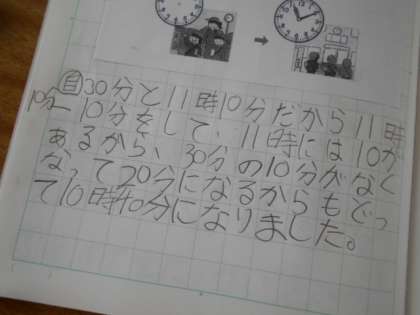 自 30分と11時10分だから11時
10分－10分をして、11時には10分
あるから、30分の10分がなく
なって20分になるからもどっ
て10時40分になりました。